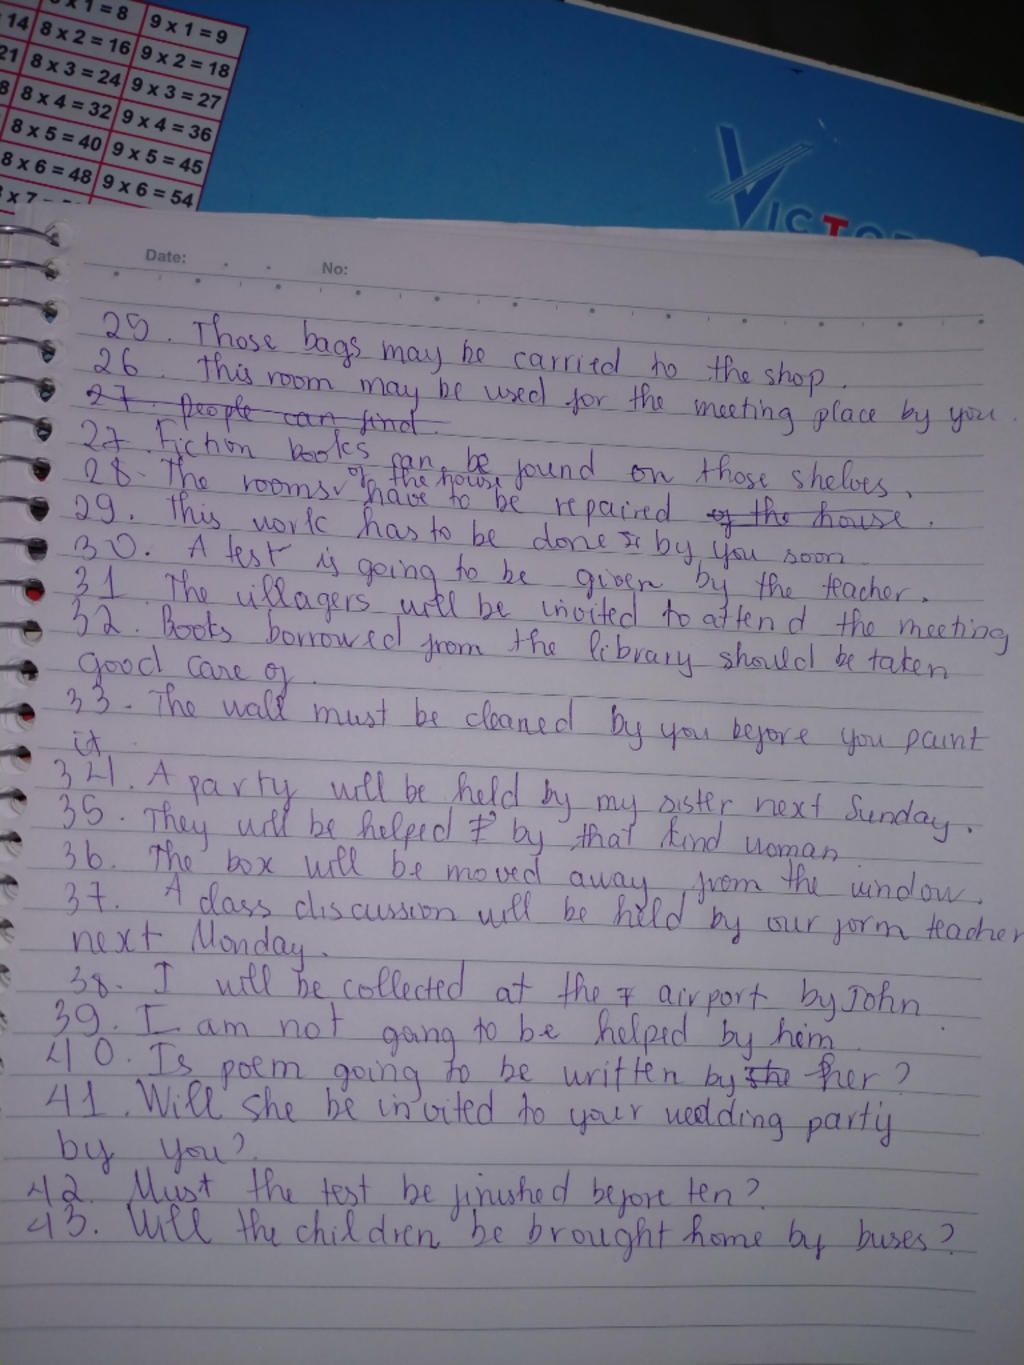 x 1 = 8 9 x 1 = 9
14 8 x 2 = 16 9 x 2 = 18
21 8 x 3 = 24 9 x 3 = 27
8 x 4 = 32 9 x 4 = 36
8 x 5 = 40 9 x 5 = 45
8 x 6 = 48 9 x 6 = 54
x 7
VICTO
Date: No:
25. Those bags may be carried to the shop.
26. This room may be used for the meeting place by you.
27. people can find
27. Fiction books can be found on those shelves.
28. The rooms of the house have to be repaired of the house.
29. This work has to be done by you soon
30. A test is going to be given by the teacher.
31. The villagers will be invited to attend the meeting
32. Books borrowed from the library should be taken
good care of.
33. The wall must be cleaned by you before you paint
it
34. A party will be held by my sister next Sunday.
35. They will be helped by that kind woman
36. The box will be moved away from the window.
37. A class discussion will be held by our form teacher
next Monday.
38. I will be collected at the airport by John
39. I am not going to be helped by him.
40. Is poem going to be written by the her?
41. Will she be invited to your wedding party
by you?
42. Must the test be finished before ten?
43. Will the children be brought home by buses?